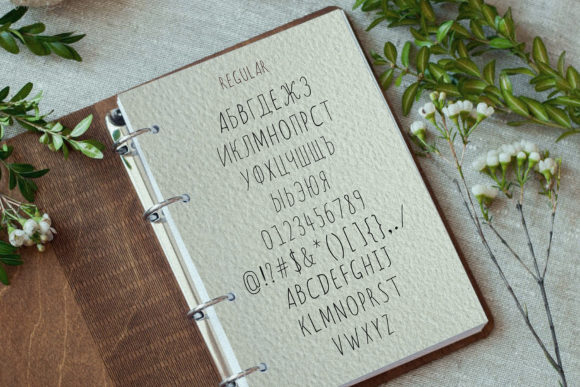 REGULAR
АБВГДЕЖЗ
ИКЛМНОПРСТ
УФХЦЧШЩЪ
ЫЬЭЮЯ
0123456789
@!?#$&*()[]{}.,/
ABCDEFGHIJ
KLMNOPRST
VWXYZ